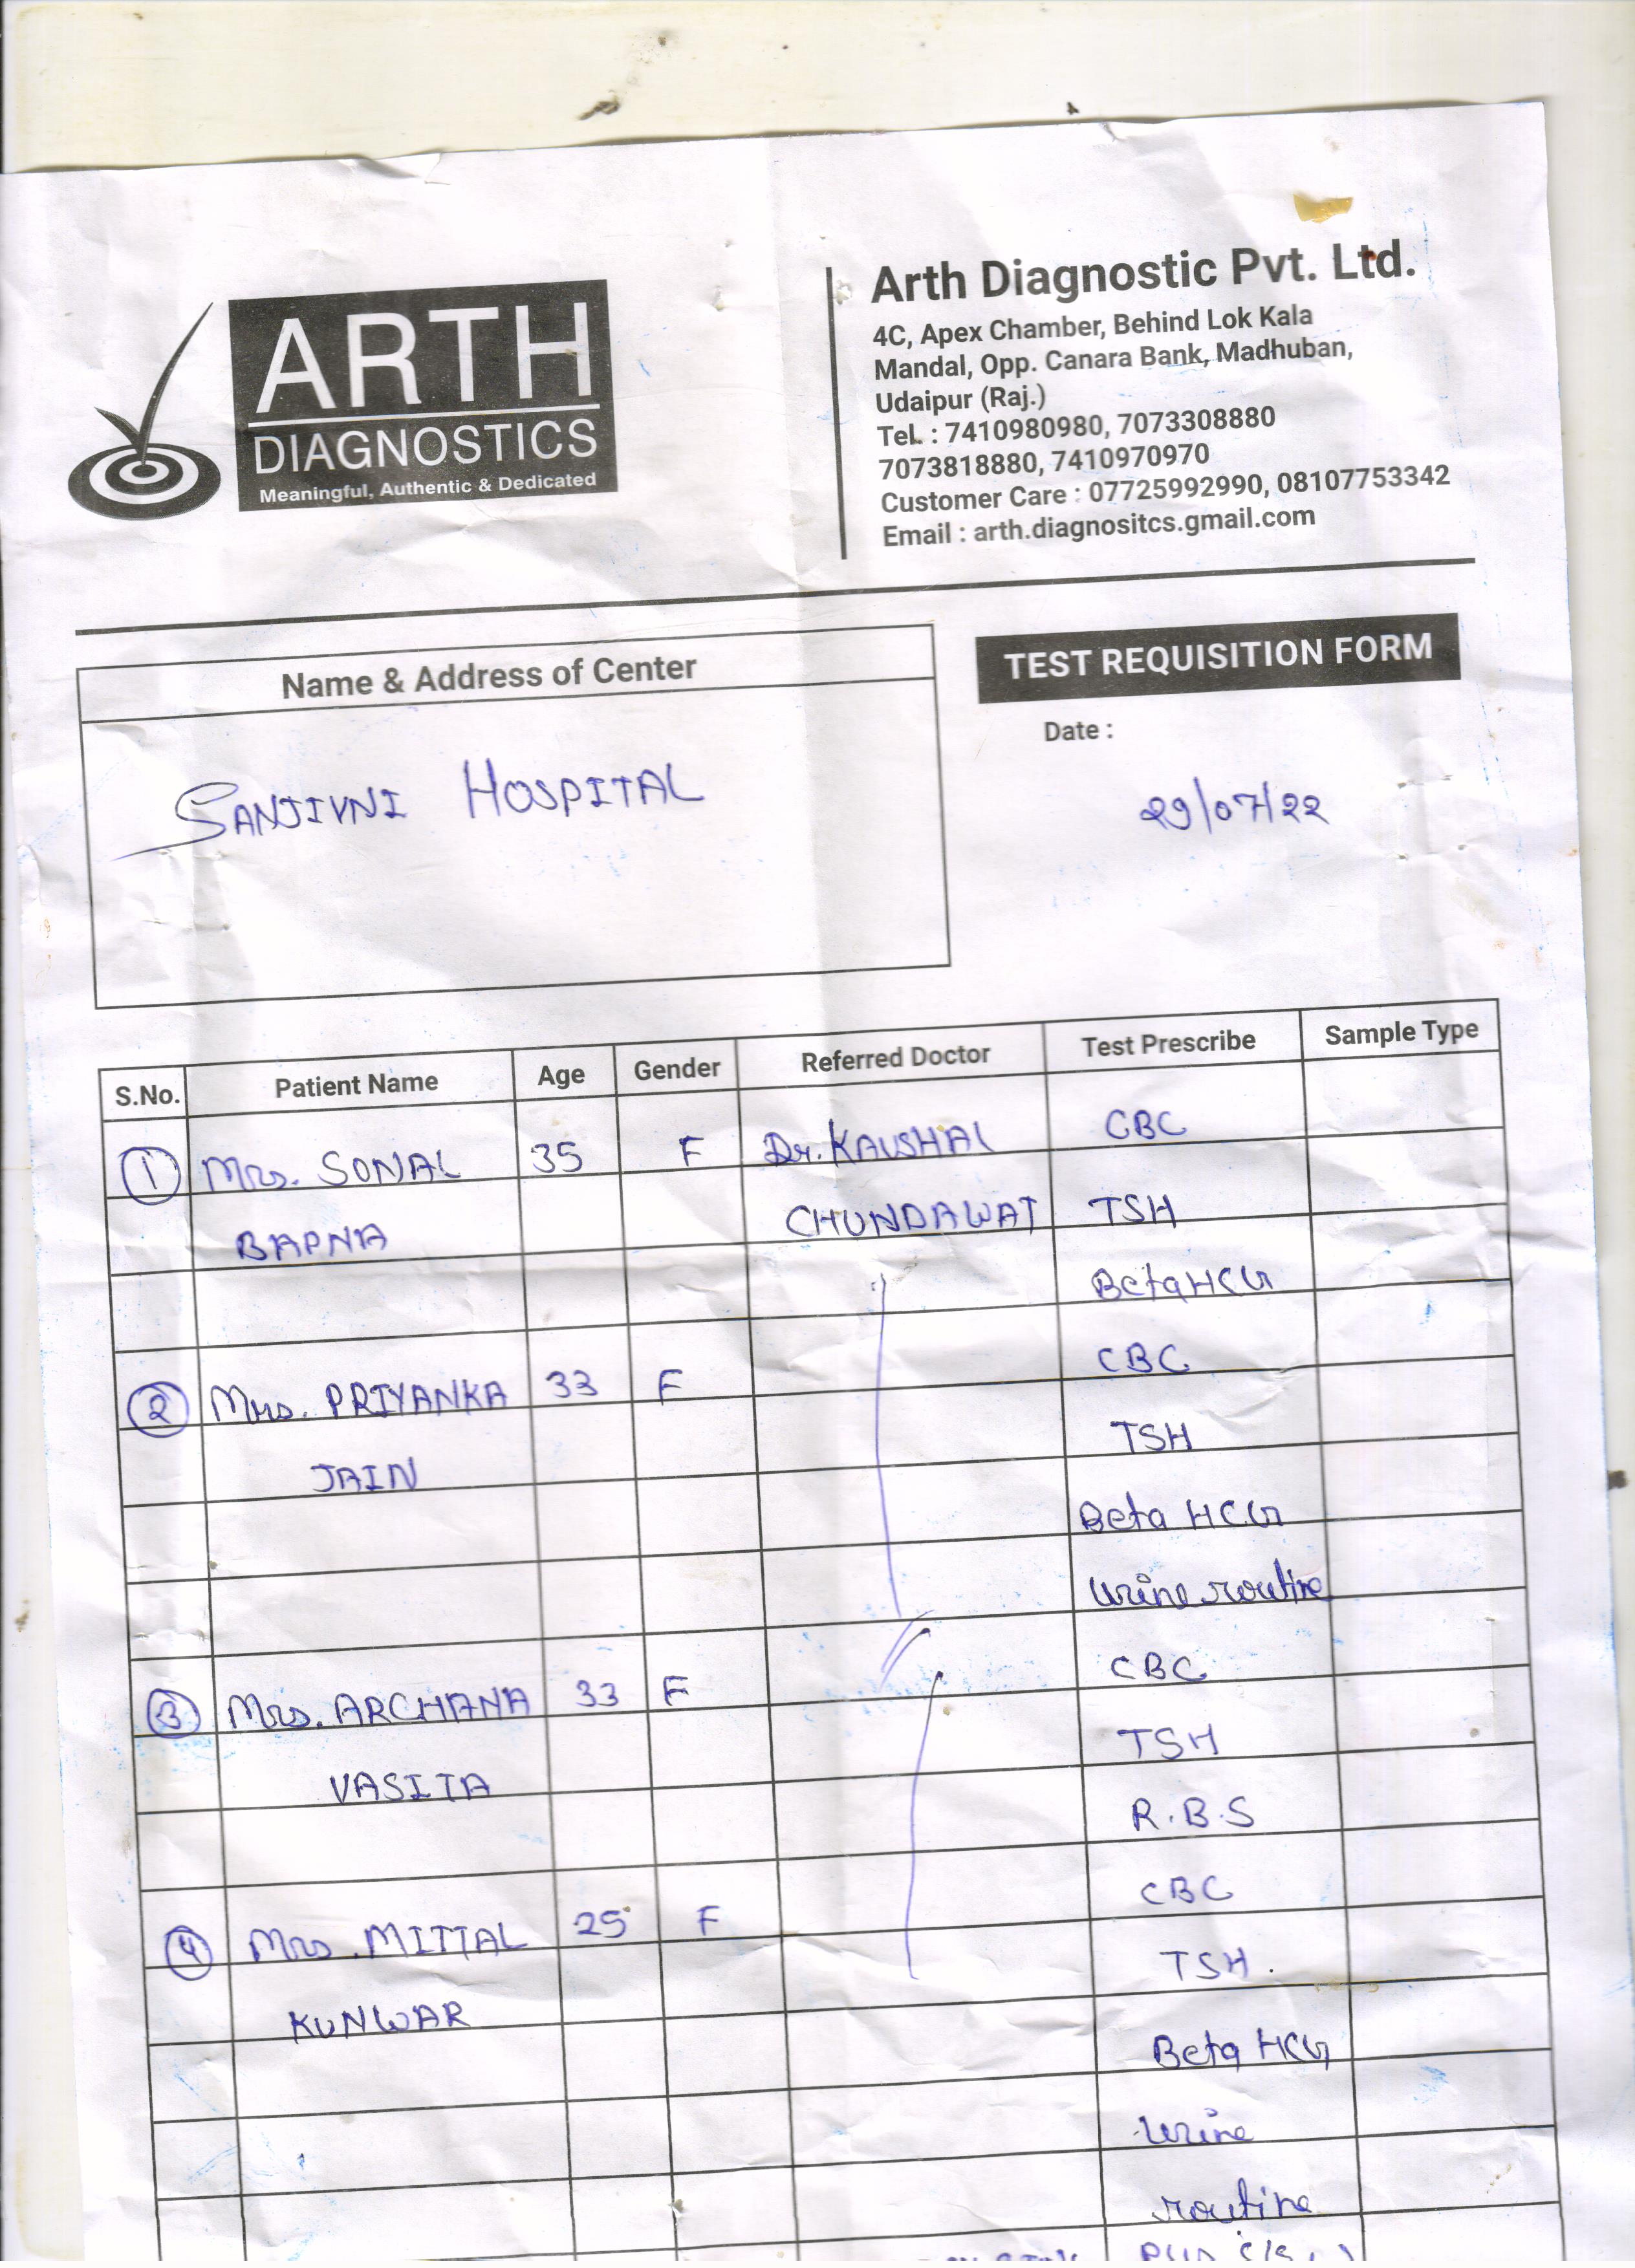 ARTH
DIAGNOSTICS
Meaningful, Authentic & Dedicated
Arth Diagnostic Pvt. Ltd.
4C, Apex Chamber, Behind Lok Kala
Mandal, Opp. Canara Bank, Madhuban,
Udaipur (Raj.)
Tel. : 7410980980, 7073308880
7073818880, 7410970970
Customer Care : 07725992990, 08107753342
Email : arth.diagnositcs.gmail.com
Name & Address of Center
SANJIVNI HOSPITAL
TEST REQUISITION FORM
Date :
29/07/22
S.No. Patient Name Age Gender Referred Doctor Test Prescribe Sample Type
1 Mrs. SONAL 35 F Dr. KAUSHAL CBC
BAPNA CHUNDAWAT TSH
Beta HCG
2 Mrs. PRIYANKA 33 F CBC
JAIN TSH
Beta HCG
Urine routine
3 Mrs. ARCHANA 33 F CBC
VASITA TSH
R.B.S
4 Mrs. MITTAL 25 F CBC
KUNWAR TSH.
Beta HCG
Urine
routine